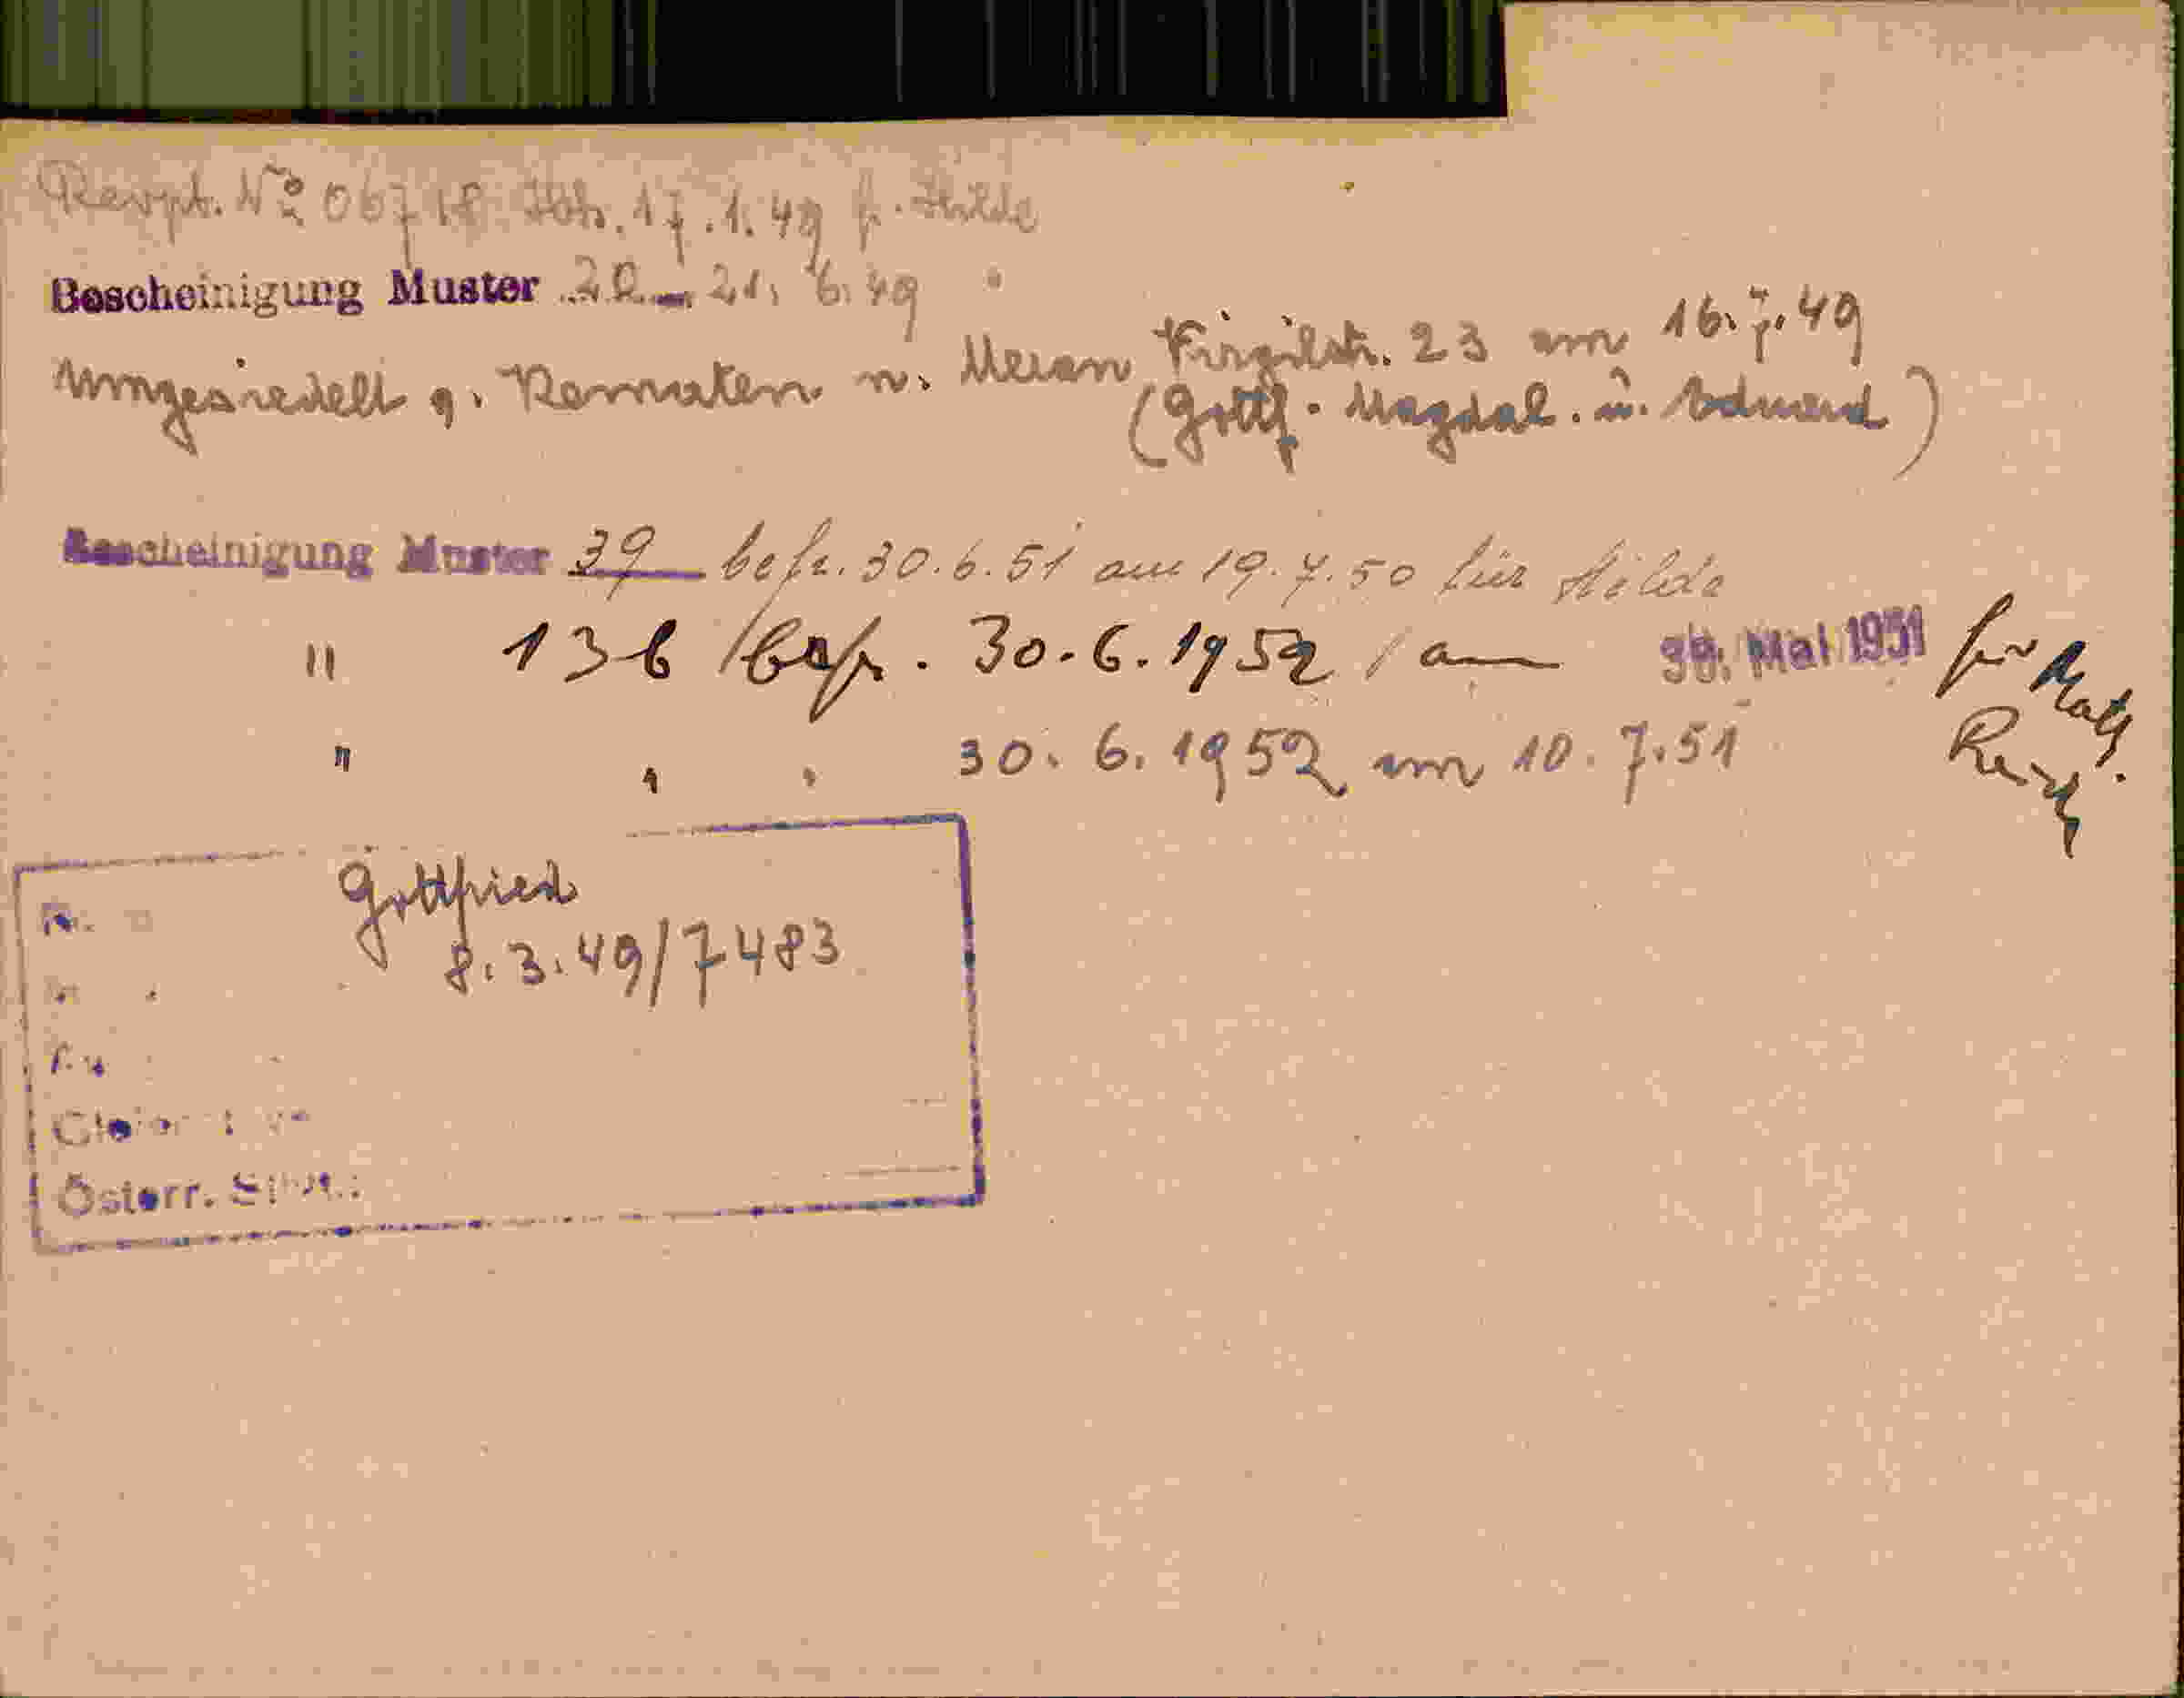 Rewpt. Nº 06718 17.1.49 f. Hilde
Bescheinigung Muster 20 21. 6. 49 "
Umgesiedelt g. Kematen n. Meran Virgilstr. 23 am 16. 7. 49
(Gottf. Magdal. u. Eduard)
Bescheinigung Muster 39 befr. 30.6.51 am 19.7.50 für Hilde
" 13b / befr. 30.6.1952 / am 30. Mai 1951 für
" " " 30. 6. 1952 am 10. 7. 51
Gottfried
8.3.49/7483
Österr.